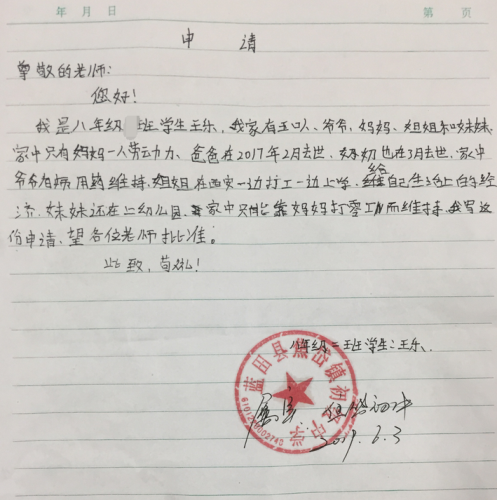 年 月 日 第 页
申 请
尊敬的老师:
您好!
我是八年级 班学生王乐,我家有五口人、爷爷、妈妈、姐姐和妹妹,
家中只有妈妈一人劳动力、爸爸在2017年2月去世、奶奶也在3月去世、家中
爷爷有病用药维持,姐姐在西安一边打工一边上学,给自己生活上的经
济、妹妹还在上幼儿园、家中只能靠妈妈打零工而维持,我写这
份申请,望各位老师批准。
此致,敬礼!
八年级二班学生:王乐、
蓝田县焦岱镇初级中学
6101220002740
属实. 焦岱初中
2019.6.3